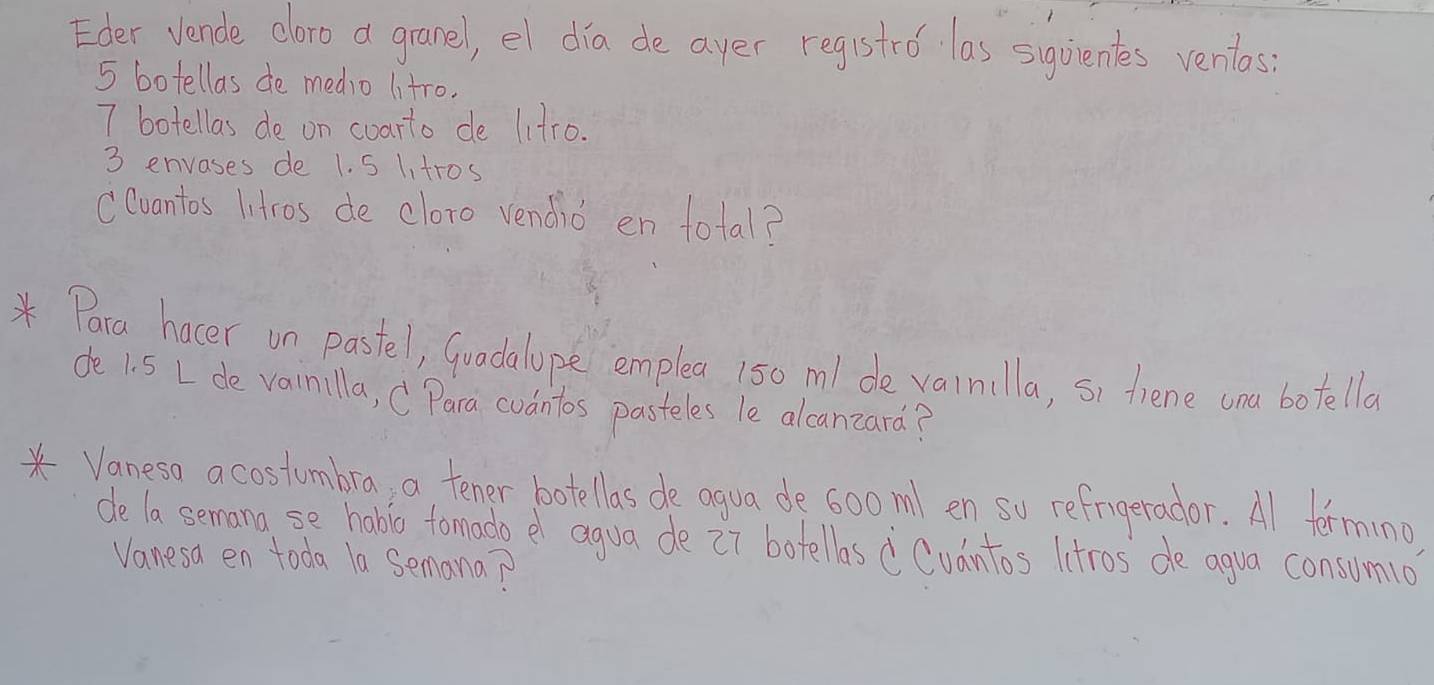 Eder vende cloro a granel, el día de ayer registró las siguientes ventas:
5 botellas de medio litro.
7 botellas de un cuarto de litro.
3 envases de 1.5 litros
¿Cuantos litros de cloro vendió en total?
* Para hacer un pastel, Guadalupe emplea 150 ml de vainilla, si tiene una botella
de 1.5 L de vainilla, ¿Para cuántos pasteles le alcanzará?
* Vanesa acostumbra a tener botellas de agua de 600 ml en su refrigerador. Al término
de la semana se había tomado el agua de 27 botellas ¿Cuántos litros de agua consumió
Vanesa en toda la semana?